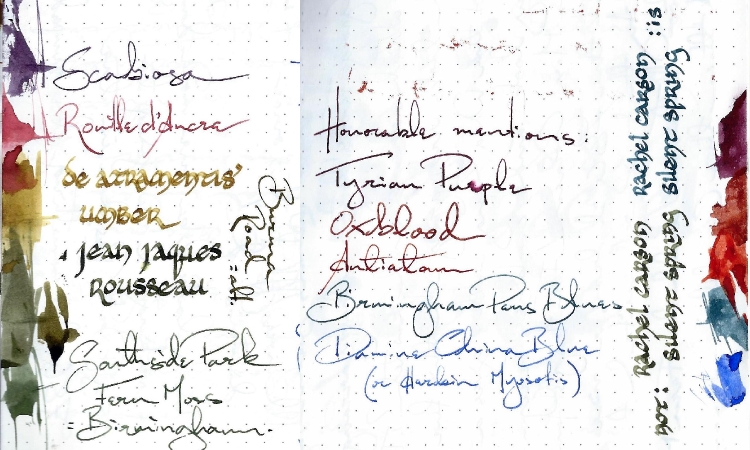 Scabiosa
Rouille d'Ancre
de atramentis'
umber
jean jaques
rousseau
Burma
Road = alt.
Southside Park
Fern Moss
= Birmingham.
Honorable mentions:
Tyrian Purple
Oxblood
Antietam
Birmingham Pens Blues
Diamine China Blue
(or Herbin Myosotis)
not: Rachel carson Rachel carson :is
silent spring silent spring